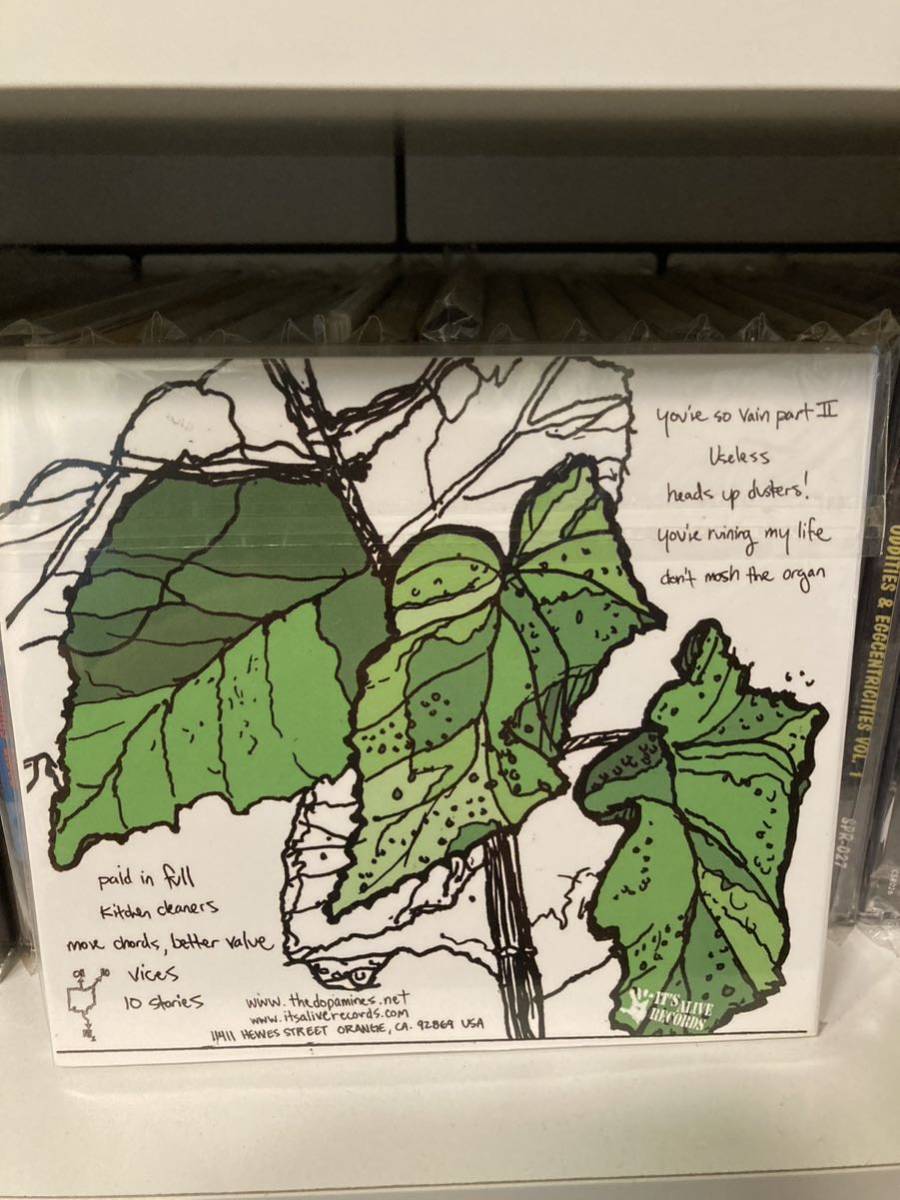 you're so vain part II
Useless
heads up dusters!
you're ruining my life
don't mosh the organ
paid in full
kitchen cleaners
more chords, better value
vices
10 stories
OH
HO
NH₂
www.thedopamines.net
www.itsaliverecords.com
11411 HEWES STREET ORANGE, CA. 92869 USA
IT'S ALIVE
RECORDS
ODDITIES & EGGCENTRICITIES VOL. 1
SPR-027